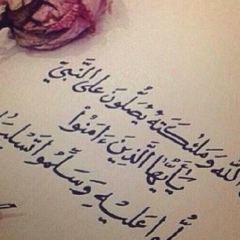 الله وَمَلَٰٓئِكَتَهُۥ يُصَلُّونَ عَلَى النَّبِيِّ
يَٰٓأَيُّهَا الَّذِينَ ءَامَنُوا۟
وا۟ عَلَيْهِ وَسَلِّمُوا۟ تَسْلِي